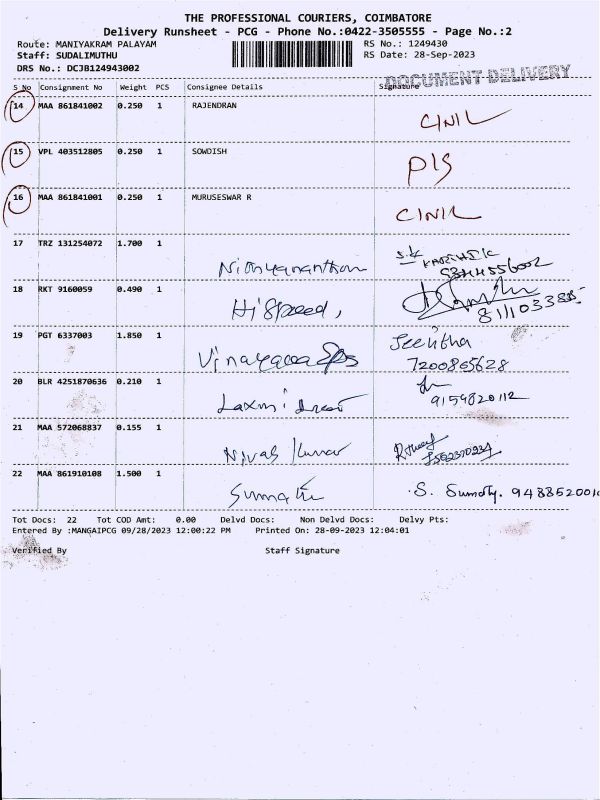 THE PROFESSIONAL COURIERS, COIMBATORE
Delivery Runsheet - PCG - Phone No.:0422-3505555 - Page No.:2
Route: MANIYAKRAM PALAYAM RS No.: 1249430
Staff: SUDALIMUTHU RS Date: 28-Sep-2023
DRS No.: DCJB124943002
DOCUMENT DELIVERY
S No Consignment No Weight PCS Consignee Details Signature
14 MAA 861841002 0.250 1 RAJENDRAN
15 VPL 403512805 0.250 1 SOWDISH
16 MAA 861841001 0.250 1 MURUSESWAR R
17 TRZ 131254072 1.700 1
18 RKT 9160059 0.490 1 Hi Speed,
19 PGT 6337003 1.850 1
7200865628
20 BLR 4251870636 0.210 1 Laxmi
9159820112
21 MAA 572068837 0.155 1 Nivas Kumar
22 MAA 861910108 1.500 1 Sumathi S. Sumathy. 9488520010
Tot Docs: 22 Tot COD Amt: 0.00 Delvd Docs: Non Delvd Docs: Delvy Pts:
Entered By :MANGAIPCG 09/28/2023 12:00:22 PM Printed On: 28-09-2023 12:04:01
Verified By Staff Signature